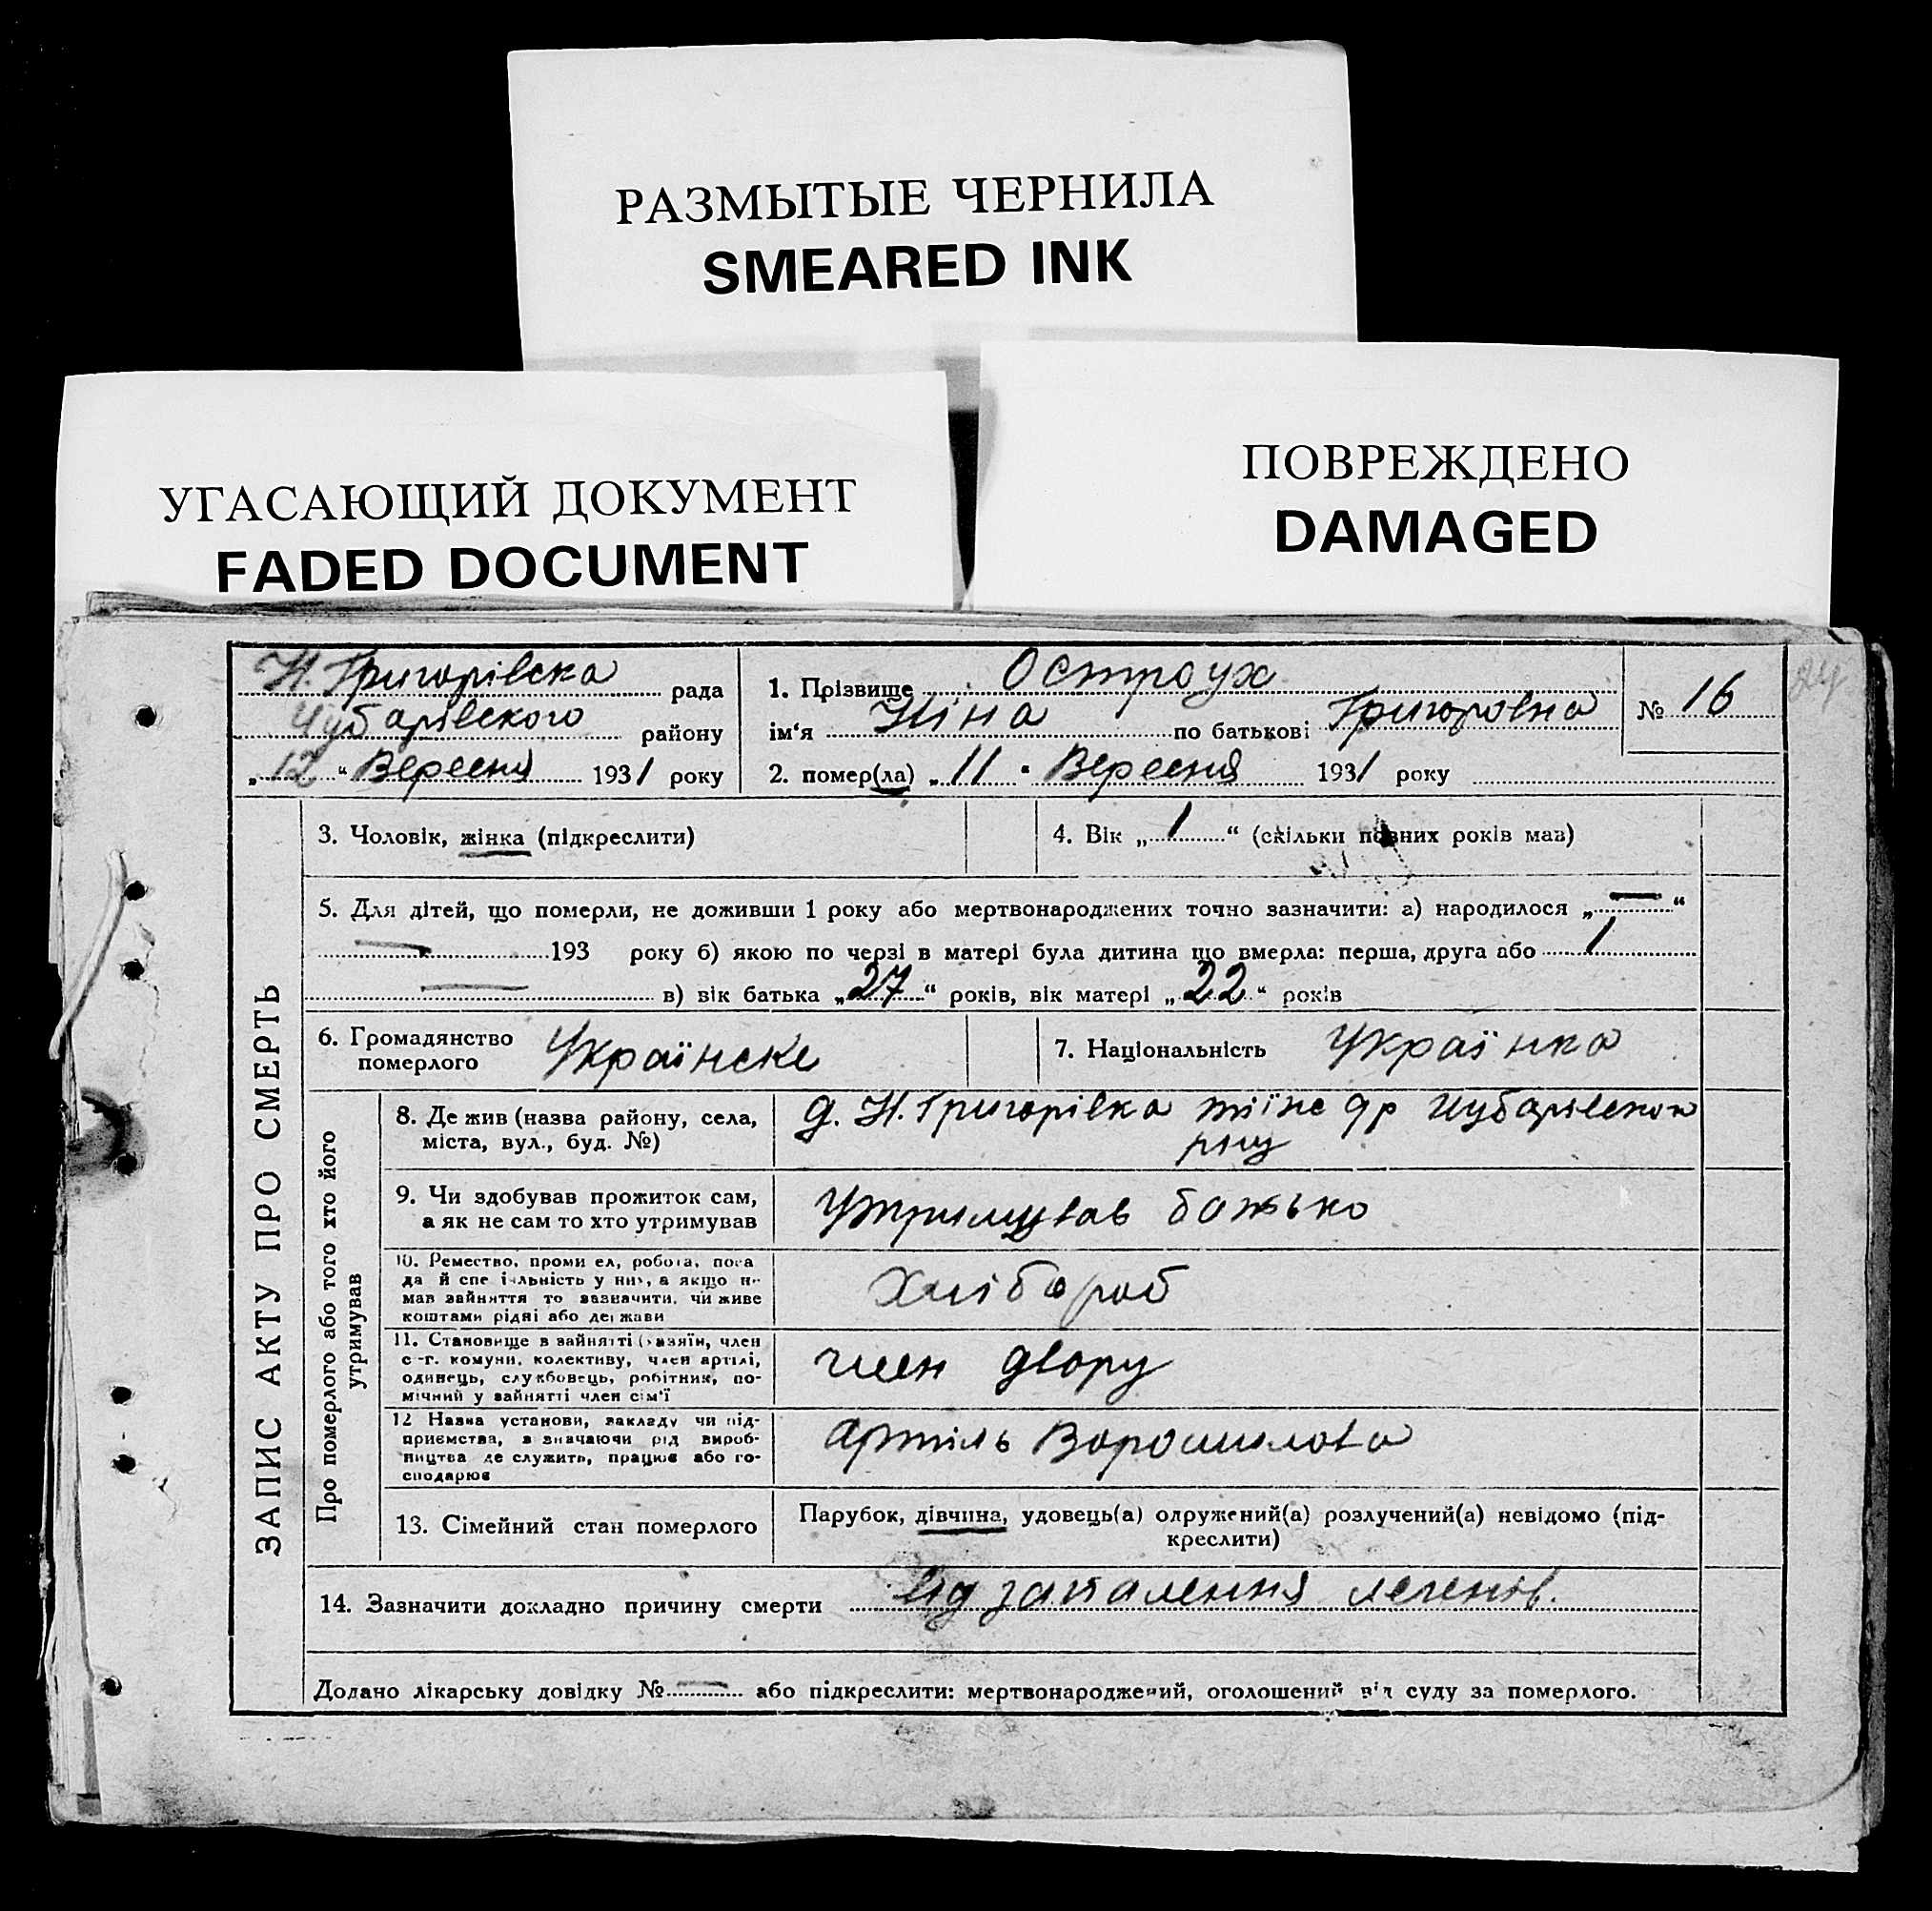 РАЗМЫТЫЕ ЧЕРНИЛА
SMEARED INK
УГАСАЮЩИЙ ДОКУМЕНТ
FADED DOCUMENT
ПОВРЕЖДЕНО
DAMAGED
24
Н. Григорівска рада
Чубарівского району
„12“ Вересня 1931 року
1. Прізвище Остроух
ім‘я Ніна по батькові Григоровна
2. помер(ла) „11“ Вересня 1931 року
№ 16
ЗАПИС АКТУ ПРО СМЕРТЬ
3. Чоловік, жінка (підкреслити)
4. Вік „1“ (скільки повних років мав)
5. Для дітей, що померли, не доживши 1 року або мертвонароджених точно зазначити: а) народилося „—“
— 193 року б) якою по черзі в матері була дитина що вмерла: перша, друга або 1
— в) вік батька „27“ років, вік матері „22“ років
6. Громадянство
померлого
Українске
7. Національність Українка
Про померлого або того хто його
утримував
8. Де жив (назва району, села,
міста, вул., буд. №)
д. Н. Григорівка
рну
9. Чи здобував прожиток сам,
а як не сам то хто утримував
Утримував батько
10. Ремество, проми ел, робота, поса
да й спе іальність у них, а якщо не
мав зайняття то зазначити, чи живе
коштами рідні або держави
Хлібороб
11. Становище в зайнятті (хазяїн, член
с-г. комуни, колективу, член артілі,
одинець, службовець, робітник, по-
мічний у зайнятті член сім‘ї
член двору
12 Назва установи, закладу чи під-
приємства, зазначаючи рід вироб-
ництва де служить, працює або го-
сподарює
Артіль Ворошилова
13. Сімейний стан померлого
Парубок, дівчина, удовець(а) одружений(а) розлучений(а) невідомо (під-
креслити)
14. Зазначити докладно причину смерти від запалення легенів.
Додано лікарську довідку №— або підкреслити: мертвонароджений, оголошений від суду за померлого.